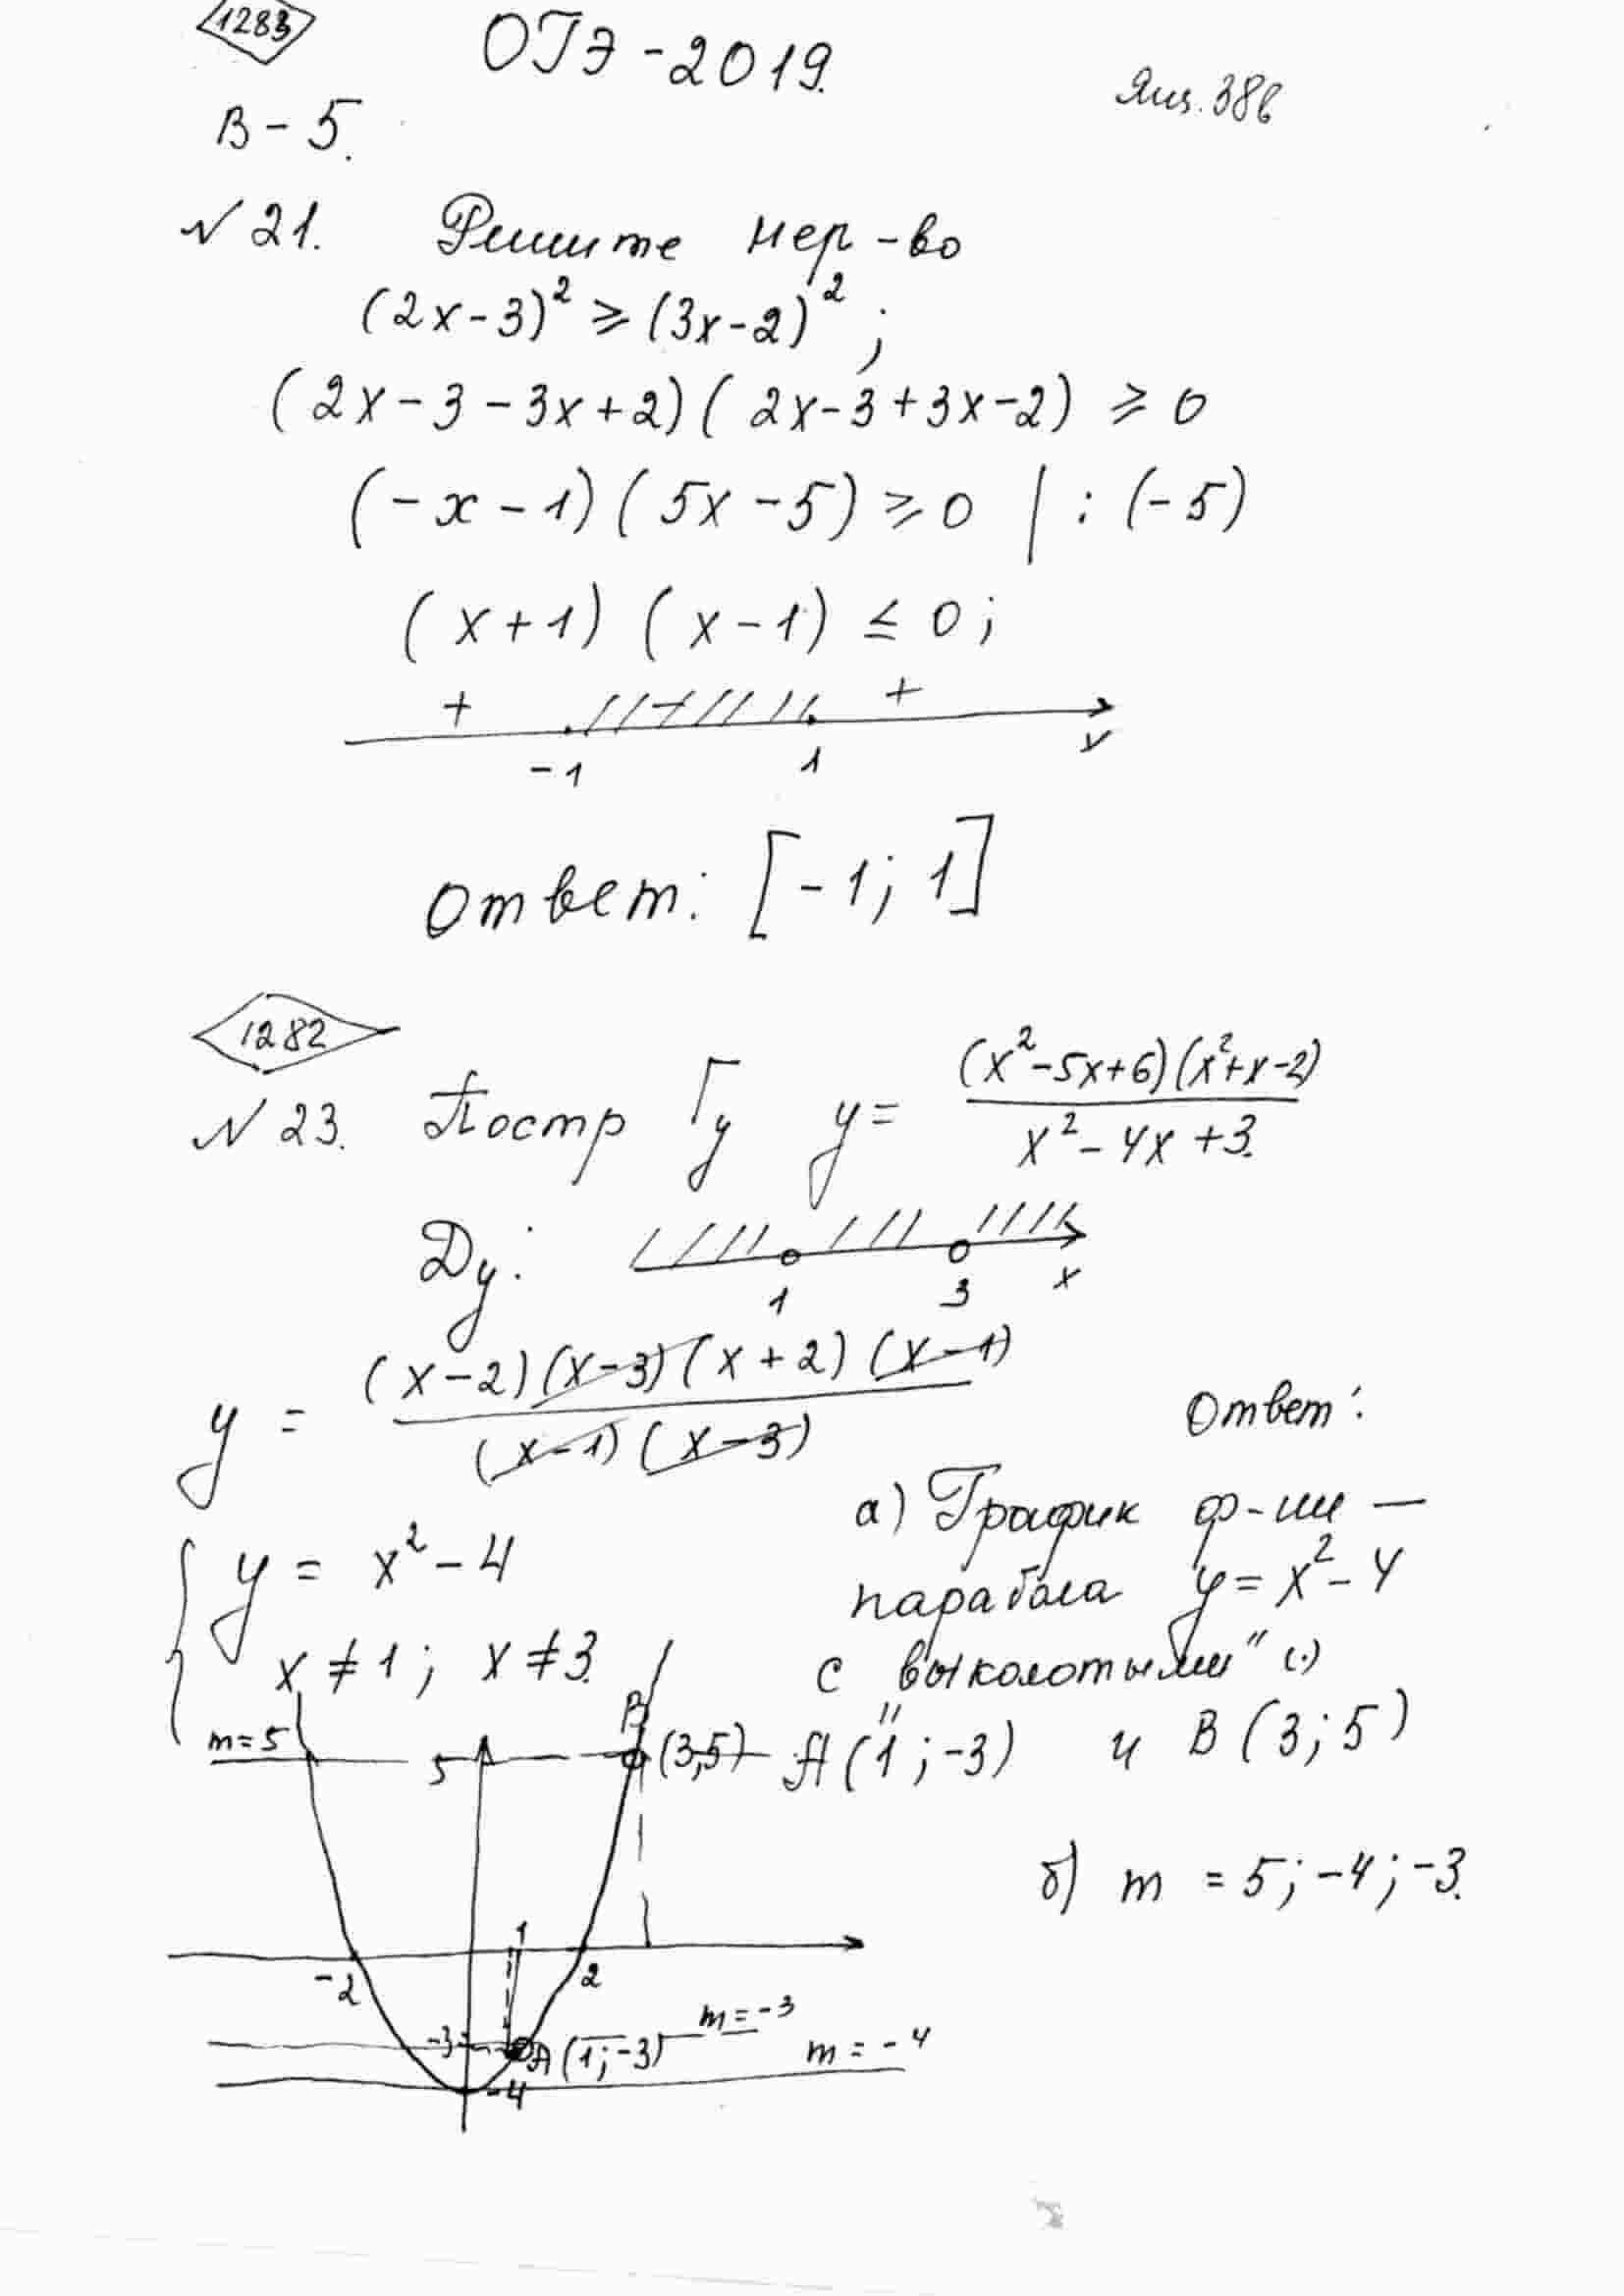 1283
ОГЭ-2019.
Ящ. 38в
В-5.
№21. Решите нер-во
(2x-3)² ⩾ (3x-2)² ;
(2x-3-3x+2)(2x-3+3x-2) ⩾ 0
(-x-1)(5x-5) ⩾ 0 | : (-5)
(x+1)(x-1) ≤ 0;
+ - +
-1 1 x
Ответ: [-1; 1]
1282
№23. Постр Гy y = (x²-5x+6)(x²+x-2) / x²-4x+3.
Dy:
1 3 x
y = (x-2)(x-3)(x+2)(x-1) / (x-1)(x-3)
Ответ:
а) График ф-ии —
парабола y = x²-4
с "выколотыми" (·)
A(1;-3) и B(3;5)
б) m = 5; -4; -3.
{ y = x²-4
x ≠ 1; x ≠ 3.
m=5 5 B (3,5)
1
-2 2
-3 A(1;-3) m=-3
-4 m=-4